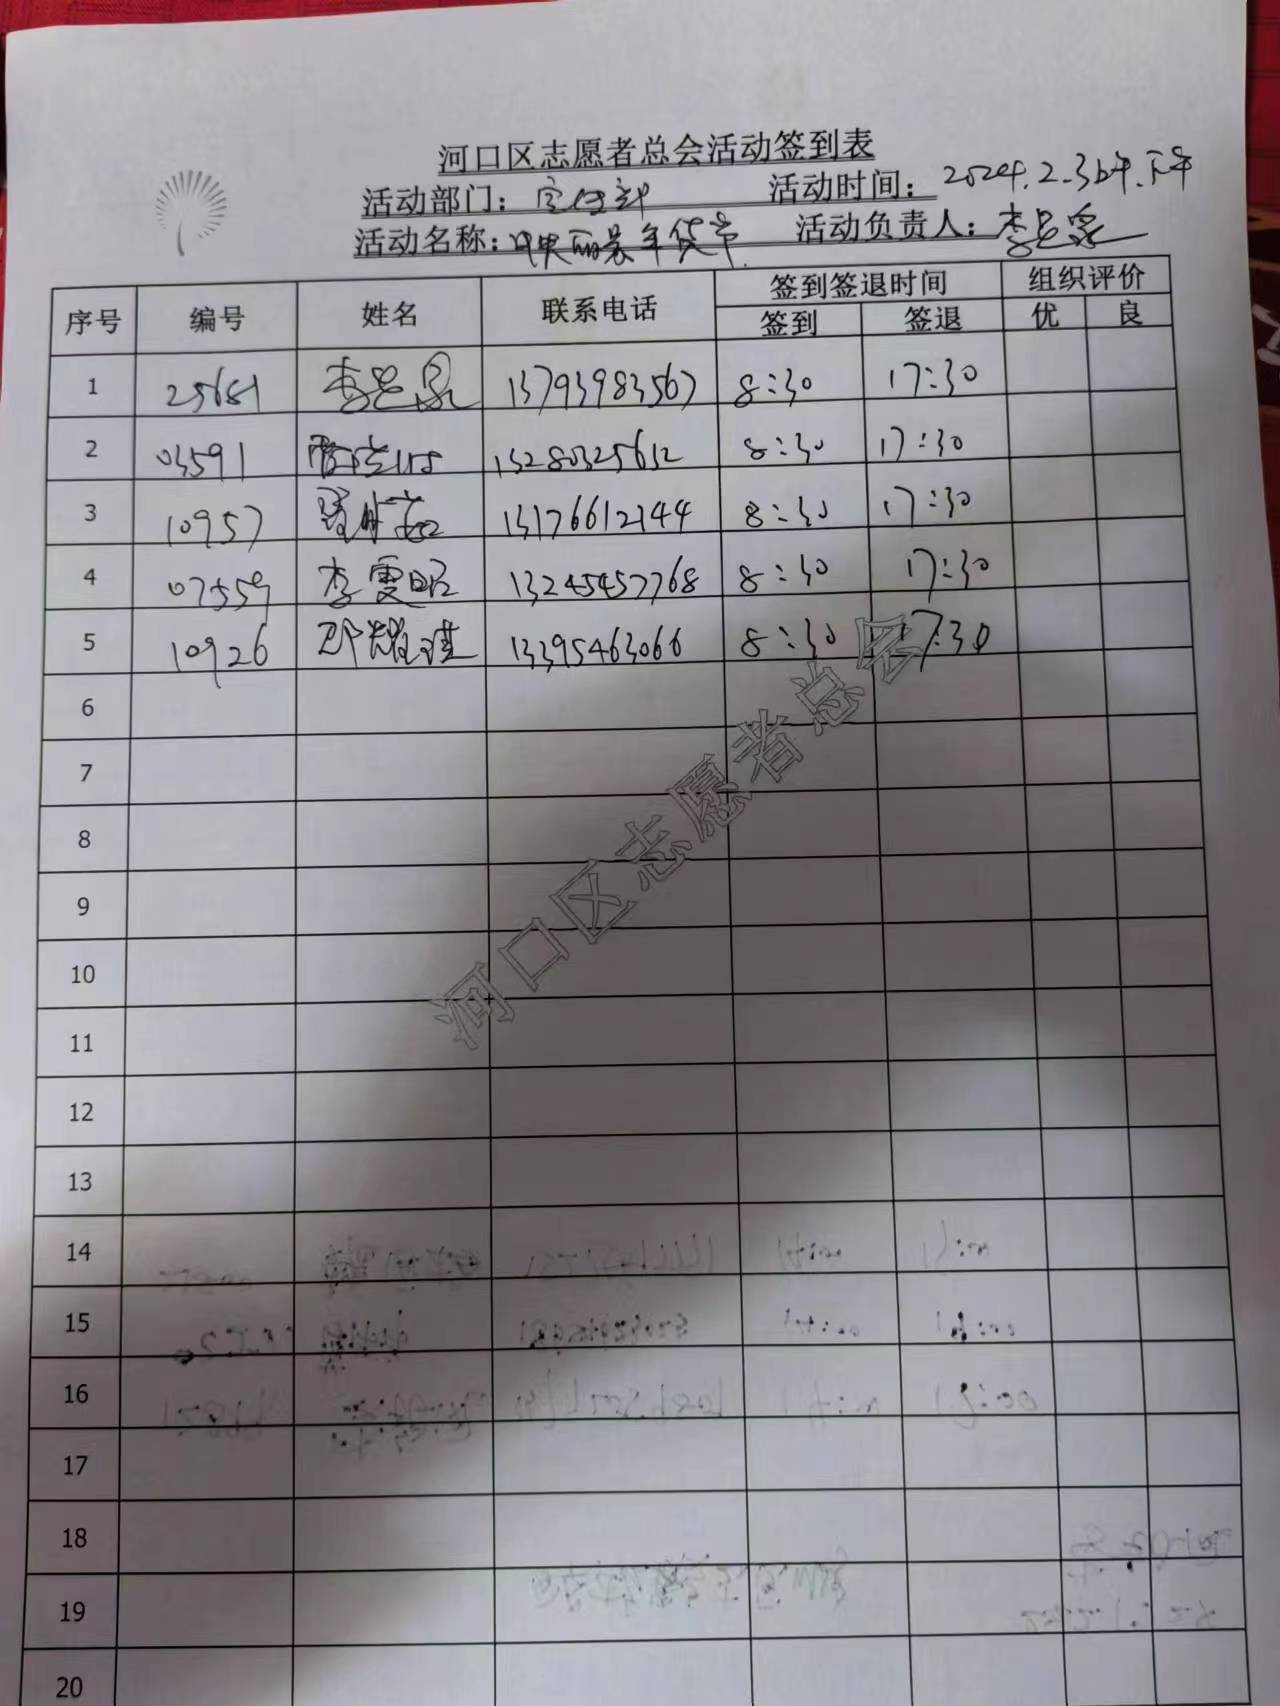 河口区志愿者总会活动签到表
活动部门：宣传部 活动时间：2024.2.3上午.下午
活动名称：中央丽景年货节 活动负责人：李
序号 编号 姓名 联系电话 签到签退时间 组织评价
签到 签退 优 良
1 25681 李 13793983567 8:30 17:30
2 03591 13280325612 8:30 17:30
3 10957 13176612144 8:30 17:30
4 07559 李雯昭 13245457768 8:30 17:30
5 10926 邵耀謹 13395463066 8:30 17:30
6
7
8
9
10
11
12
13
14
15
16
17
18
19
20
河口区志愿者总会